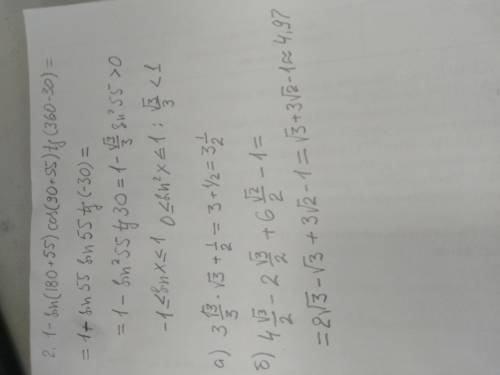 2. 1 - sin(180+55) cos(90+55) tg(360-30) =
= 1 + sin 55 sin 55 tg(-30) =
= 1 - sin²55 tg 30 = 1 - √3/3 sin²55 > 0
-1 ≤ sin x ≤ 1   0 ≤ sin²x ≤ 1 ; √3/3 < 1
а) 3 √3/3 · √3 + 1/2 = 3 + 1/2 = 3 1/2
б) 4 √3/2 - 2 √3/2 + 6 √2/2 - 1 =
= 2√3 - √3 + 3√2 - 1 = √3 + 3√2 - 1 ≈ 4,97